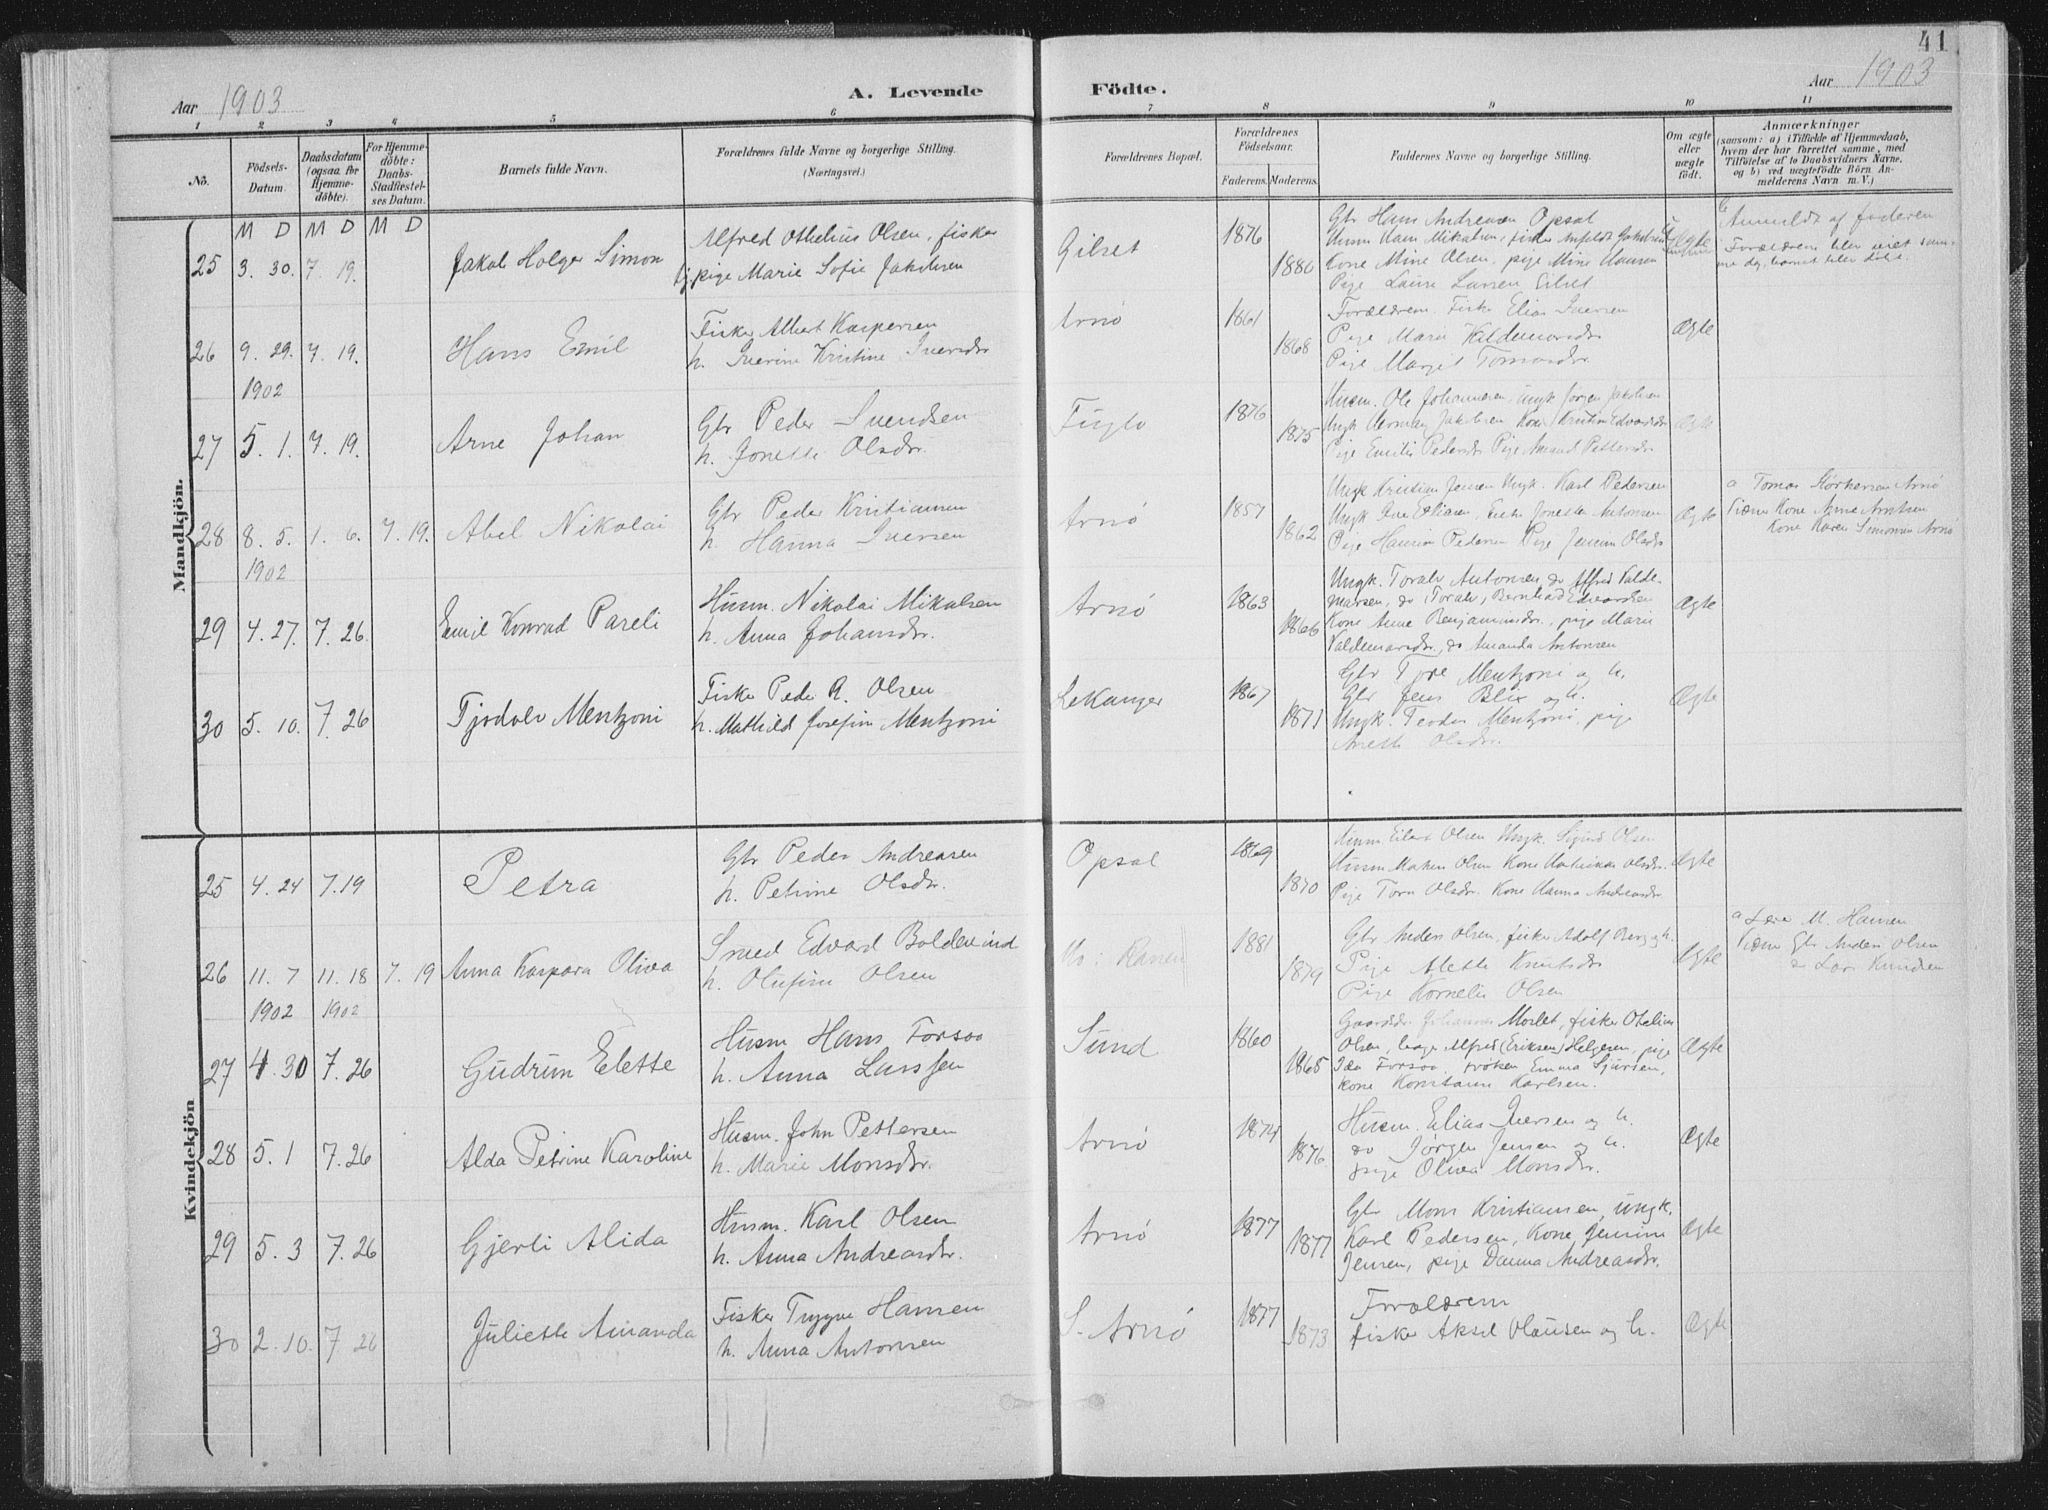 41
Aar 1903
A. Levende
Födte.
Aar 1903
1 2 3 4 5 6 7 8 9 10 11
No.
Födsels-
Datum.
Daabsdatum
(ogsaa for
Hjemme-
döbte).
For Hjemme-
döbte:
Daabs-
Stadfæstel-
ses Datum.
Barnets fulde Navn.
Forældrenes fulde Navne og borgerlige Stilling.
(Næringsvei.)
Forældrenes Bopæl.
Forældrenes
Födselsaar.
Faderens. Moderens.
Faddernes Navne og borgerlige Stilling.
Om ægte
eller
uægte
födt.
Anmærkninger
(saasom: a) i Tilfælde af Hjemmedaab,
hvem der har forrettet samme, med
Tilföielse af to Daabsvidners Navne.
og b) ved uægtefödte Börn An-
melderens Navn m. V.)
M D M D M D
Mandkjön.
25 3. 30. 7. 19. Jakob Holger Simon
Alfred Othelius Olsen, fisker
pige Marie Sofie Jakobsen
Gilset 1876 1880
Gbr Hans Andreasen Opsal
Kone Mine Olsen, pige Mine Hansen
Pige Laura Larsen Gilset
Anmeldt af faderen
Forældrene blev viet sam-
me dag, barnet blev døbt.
26 9. 29. 7. 19. Hans Emil
1902
Fisker Albert Kaspersen
h. Iverine Kristine Iversdr
Arnø 1861 1868
Forældrene Fisker Elias Iversen
Pige Marie Valdemarsdr
Pige Margit Tomasdr.
Ægte
27 5. 1. 7. 19. Arne Johan
Gbr Peder Svendsen
h. Jonette Olsdr.
Fuglø 1876 1875
Husm. Ole Johannesen, Ungk Jørgen Jakobsen
Ungk Herman Jakobsen Kone Kristine Edvardsdr
Pige Emilie Pedersdr Pige Amand Pettersdr
Ægte
28 8. 5. 1. 6. 7. 19. Abel Nikolai
1902
Gbr Peder Kristiansen
h. Hanna Iversen
Arnø 1857 1862
Ungk Kristian Jensen Ungk. Karl Pedersen
Pige Hanna Pedersen Pige Jensine Olsdr
Ægte
a Tomas Størkersen Arnø
Kone Anne Arntsen
Kone Karen Simonsen Arnø
29 4. 27. 7. 26. Emil Konrad Pareli
Husm. Nikolai Mikalsen
h. Anna Johansdr.
Arnø 1863 1866
Ungk. Toralv Antonsen, do Alfred Valde-
marsen, do Toralv, Bernhard Edvardsen
Kone Anne Benjaminsdr., pige Marie
Valdemarsdr., do Amanda Antonsen
Ægte
30 5. 10. 7. 26 Tjodolv Mentzoni
Fisker Peder A. Olsen
h. Mathilde Josefine Mentzoni
Lekanger 1867 1871
Gbr Tore Mentzoni og h.
Gbr Jens Blix og h.
Ungk. Teodor Mentzoni, pige
Anette Olsdr.
Ægte
Kvindekjön
25 4. 24 7. 19 Petra
Gbr Peder Andreasen
h. Petrine Olsdr.
Opsal 1869 1870
Husm Eilert Olsen Ungk. Sigurd Olsen
Husm Markus Olsen Kone Katrine Olsdr.
Pige Tora Olsdr. Kone Hanna Andreasdr.
Ægte
26 11. 7 11. 18 7. 19 Anna Kaspara Oliva
1902 1902
Smed Edvard Baldevind
h. Olufine Olsen
Mo i Ranen 1881 1879
Gbr Anders Olsen, fisker Adolf Berg og h.
Pige Alette Knutsdr.
Pige Kornelie Olsen
Ægte
a Lærer M. Hansen
Gbr Anders Olsen
Lars Knudsen
27 4. 30 7. 26 Gudrun Elette
Husm Hans Forsaa
h. Anna Larssen
Sund 1860 1865
Gaardbr. Johannes Morlet, fisker Othelius
Olsen, bage Alfred (Eriksen) Helgesen, pige
Ida Forsaa, frøken Emma Sjursen,
kone Konstanse Karlsen.
Ægte
28 5. 1 7. 26 Alda Petrine Karoline
Husm. John Pettersen
h. Marie Monsdr.
Arnø 1874 1876
Husm. Elias Iversen og h.
do Jørgen Jensen og h.
pige Oliva Monsdr.
Ægte
29 5. 3 7. 26 Gjerti Alida
Husm. Karl Olsen
h. Anna Andreasdr.
Arnø 1877 1877
Gbr Mons Kristiansen, ungk.
Karl Pedersen, Kone Jensine
Jensen, pige Danna Andreasdr.
Ægte
30 2. 10. 7. 26 Juliette Amanda
Fisker Trygve Hansen
h. Anna Antonsen
S. Arnø 1877 1873
Forældrene
fisker Aksel Olausen og h.
Ægte